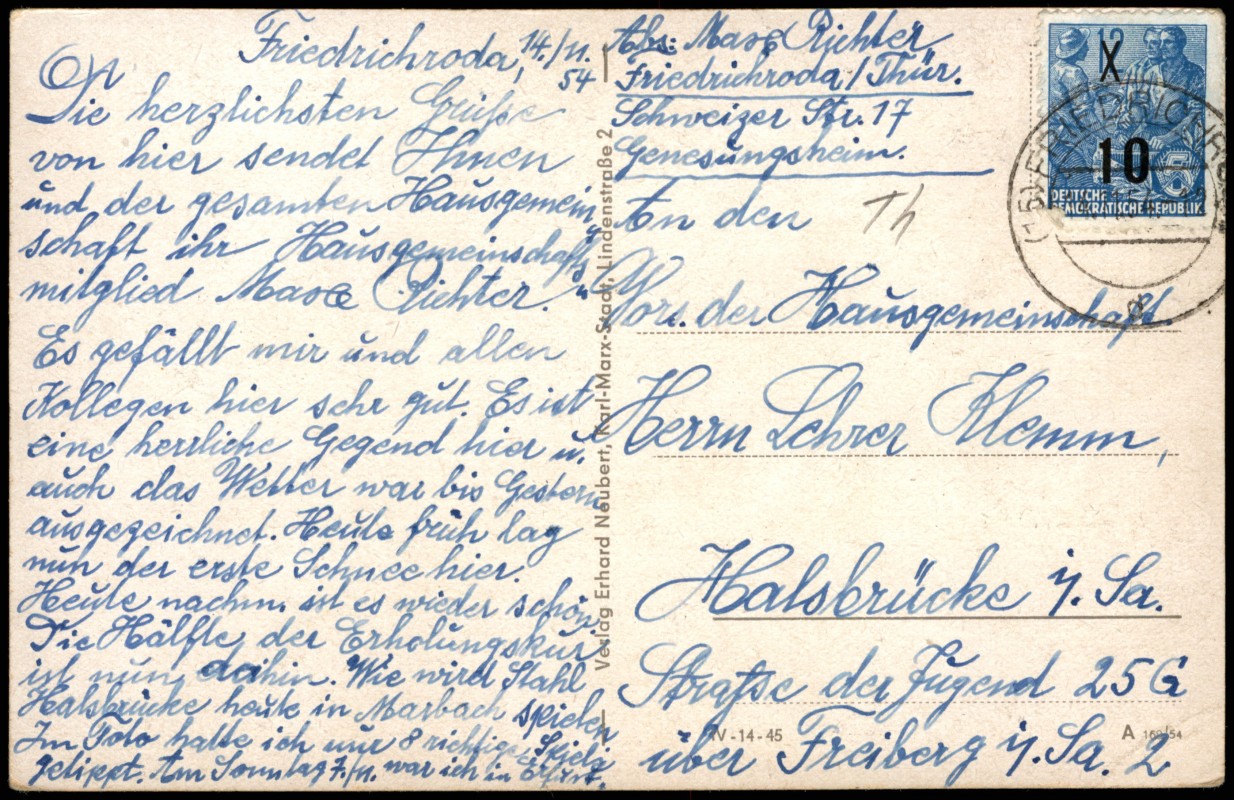 Friedrichroda, 14./11. 54
Die herzlichsten Grüße
von hier sendet Ihnen
und der gesamten Hausgemein
schaft ihr Hausgemeinschafts
mitglied Max Richter.
Es gefällt mir und allen
Kollegen hier sehr gut. Es ist
eine herrliche Gegend hier u.
auch das Wetter war bis Gestern
ausgezeichnet. Heute früh lag
nun der erste Schnee hier.
Heute nachm. ist es wieder schön
Die Hälfte der Erholungskur
ist nun dahin. Wie wird Stahl
Halsbrücke heute in Marbach spielen
Im Toto hatte ich nur 8 richtige Spiele
getippt. Am Sonntag 7./11. war ich in Erfurt.
Verlag Erhard Neubert, Karl-Marx-Stadt, Lindenstraße 2
Abs: Max Richter
Friedrichroda/Thür.
Schweizer Str. 17
Genesungsheim.
An den
Vors. der Hausgemeinschaft.
Herrn Lehrer Klemm,
Halsbrücke i. Sa.
Straße der Jugend 25G
über Freiberg i. Sa. 2
IV-14-45
A 169/54
Th
12
X
10
DEUTSCHE
DEMOKRATISCHE REPUBLIK
(15) FRIEDRICHRO